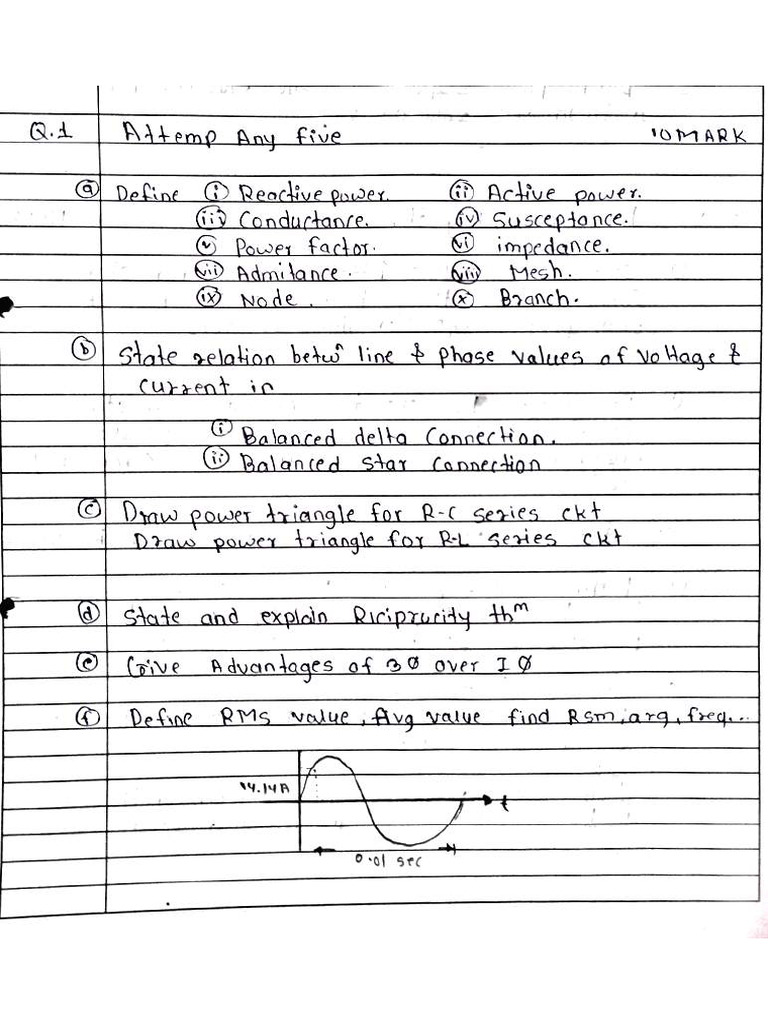 Q.1 Attemp Any five 10 MARK
a Define i Reactive power. ii Active power.
iii Conductance. iv Susceptance.
v Power factor. vi impedance.
vii Admitance. viii Mesh.
ix Node. x Branch.
b State relation betwn line & phase values of voltage &
current in
i Balanced delta Connection.
ii Balanced star Connection
c Draw power triangle for R-C series ckt
Draw power triangle for R-L series ckt
d State and explain Riciprucity thm
e Give Advantages of 3Ø over 1Ø
f Define RMS value, Avg value find Rsm, arg, freq...
14.14A
t
0.01 sec